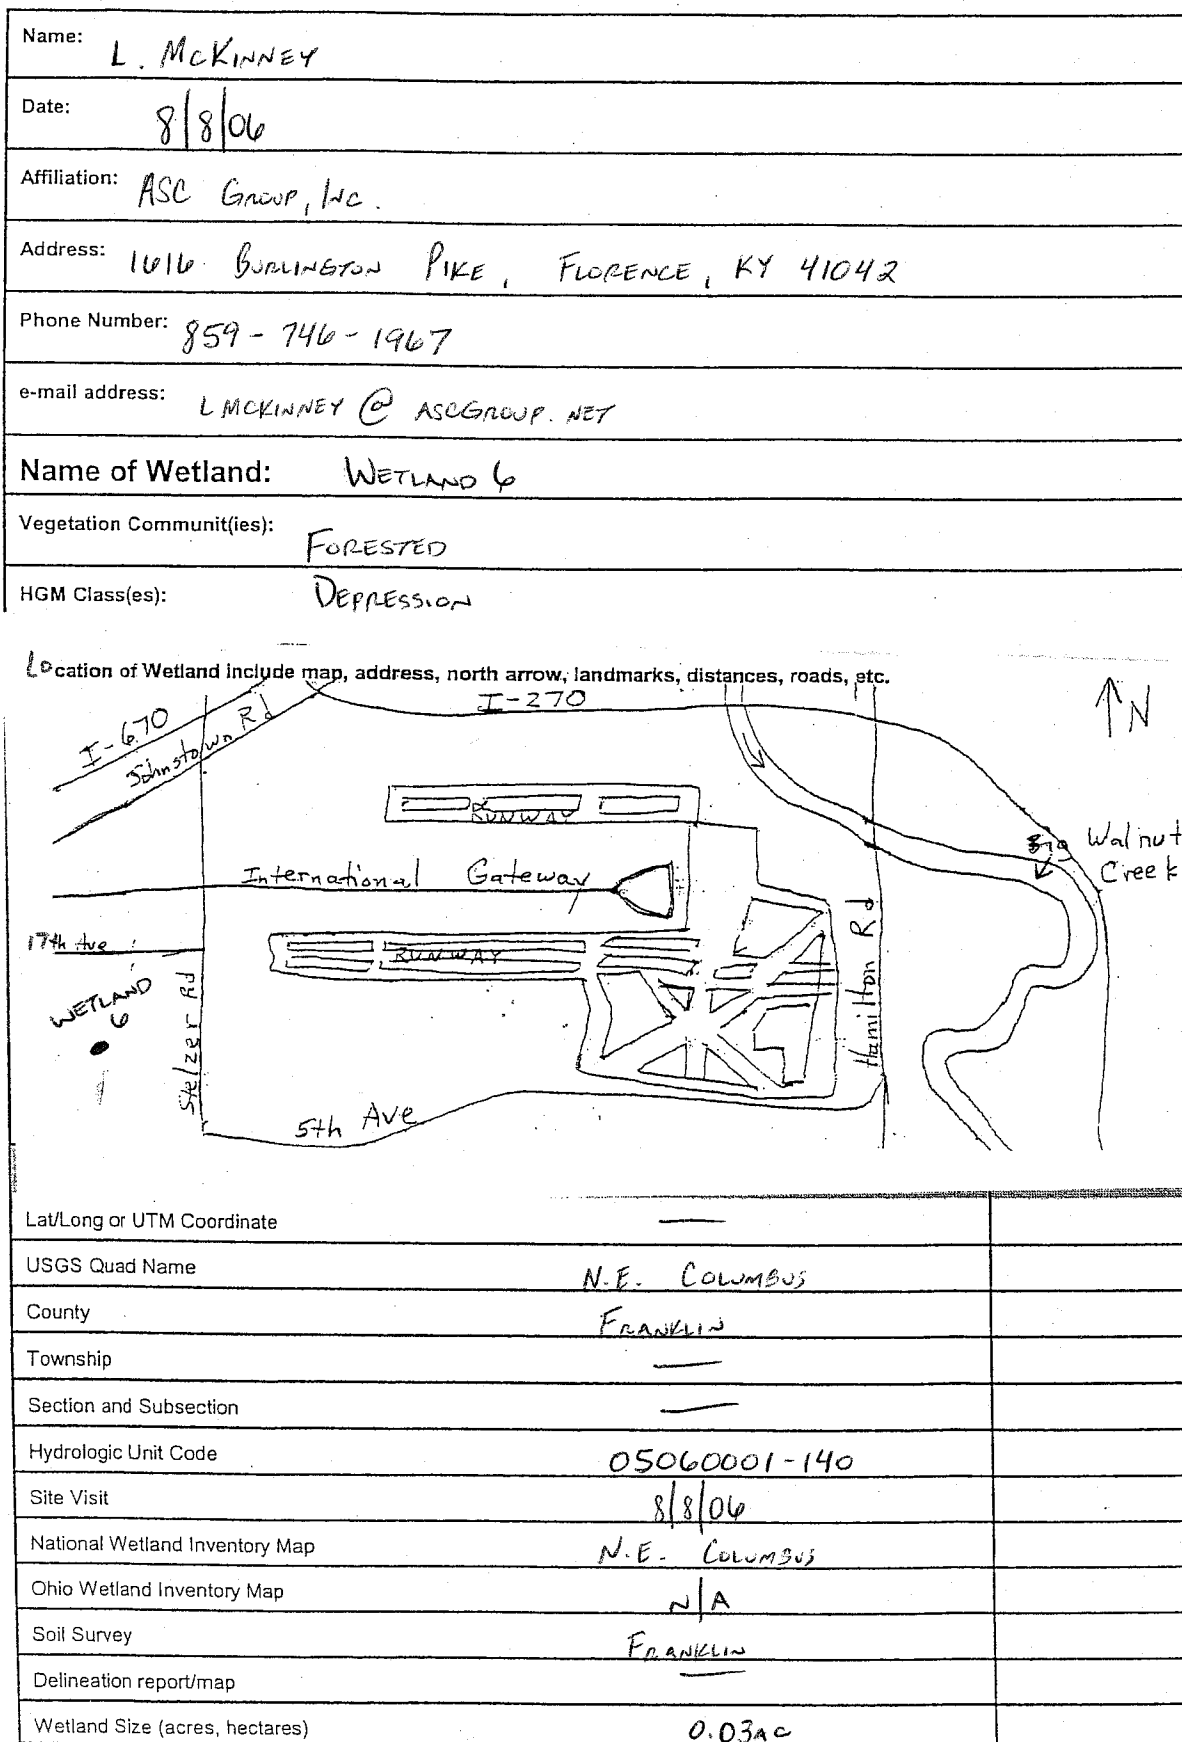 Name: L. McKinney
Date: 8/8/06
Affiliation: ASC Group, Inc.
Address: 1616 Burlington Pike, Florence, KY 41042
Phone Number: 859-746-1967
e-mail address: LMCKINNEY @ ASCGROUP.NET
Name of Wetland: Wetland 6
Vegetation Communit(ies): Forested
HGM Class(es): Depression
Location of Wetland include map, address, north arrow, landmarks, distances, roads, etc.
I-270
N
I-670
Johnstown Rd
RUNWAY
Big Walnut Creek
International Gateway
17th Ave
RUNWAY
Hamilton Rd
WETLAND 6
Stelzer Rd
5th Ave
Lat/Long or UTM Coordinate —
USGS Quad Name N.E. Columbus
County Franklin
Township —
Section and Subsection —
Hydrologic Unit Code 05060001-140
Site Visit 8/8/06
National Wetland Inventory Map N.E. Columbus
Ohio Wetland Inventory Map N/A
Soil Survey Franklin
Delineation report/map —
Wetland Size (acres, hectares) 0.03 ac